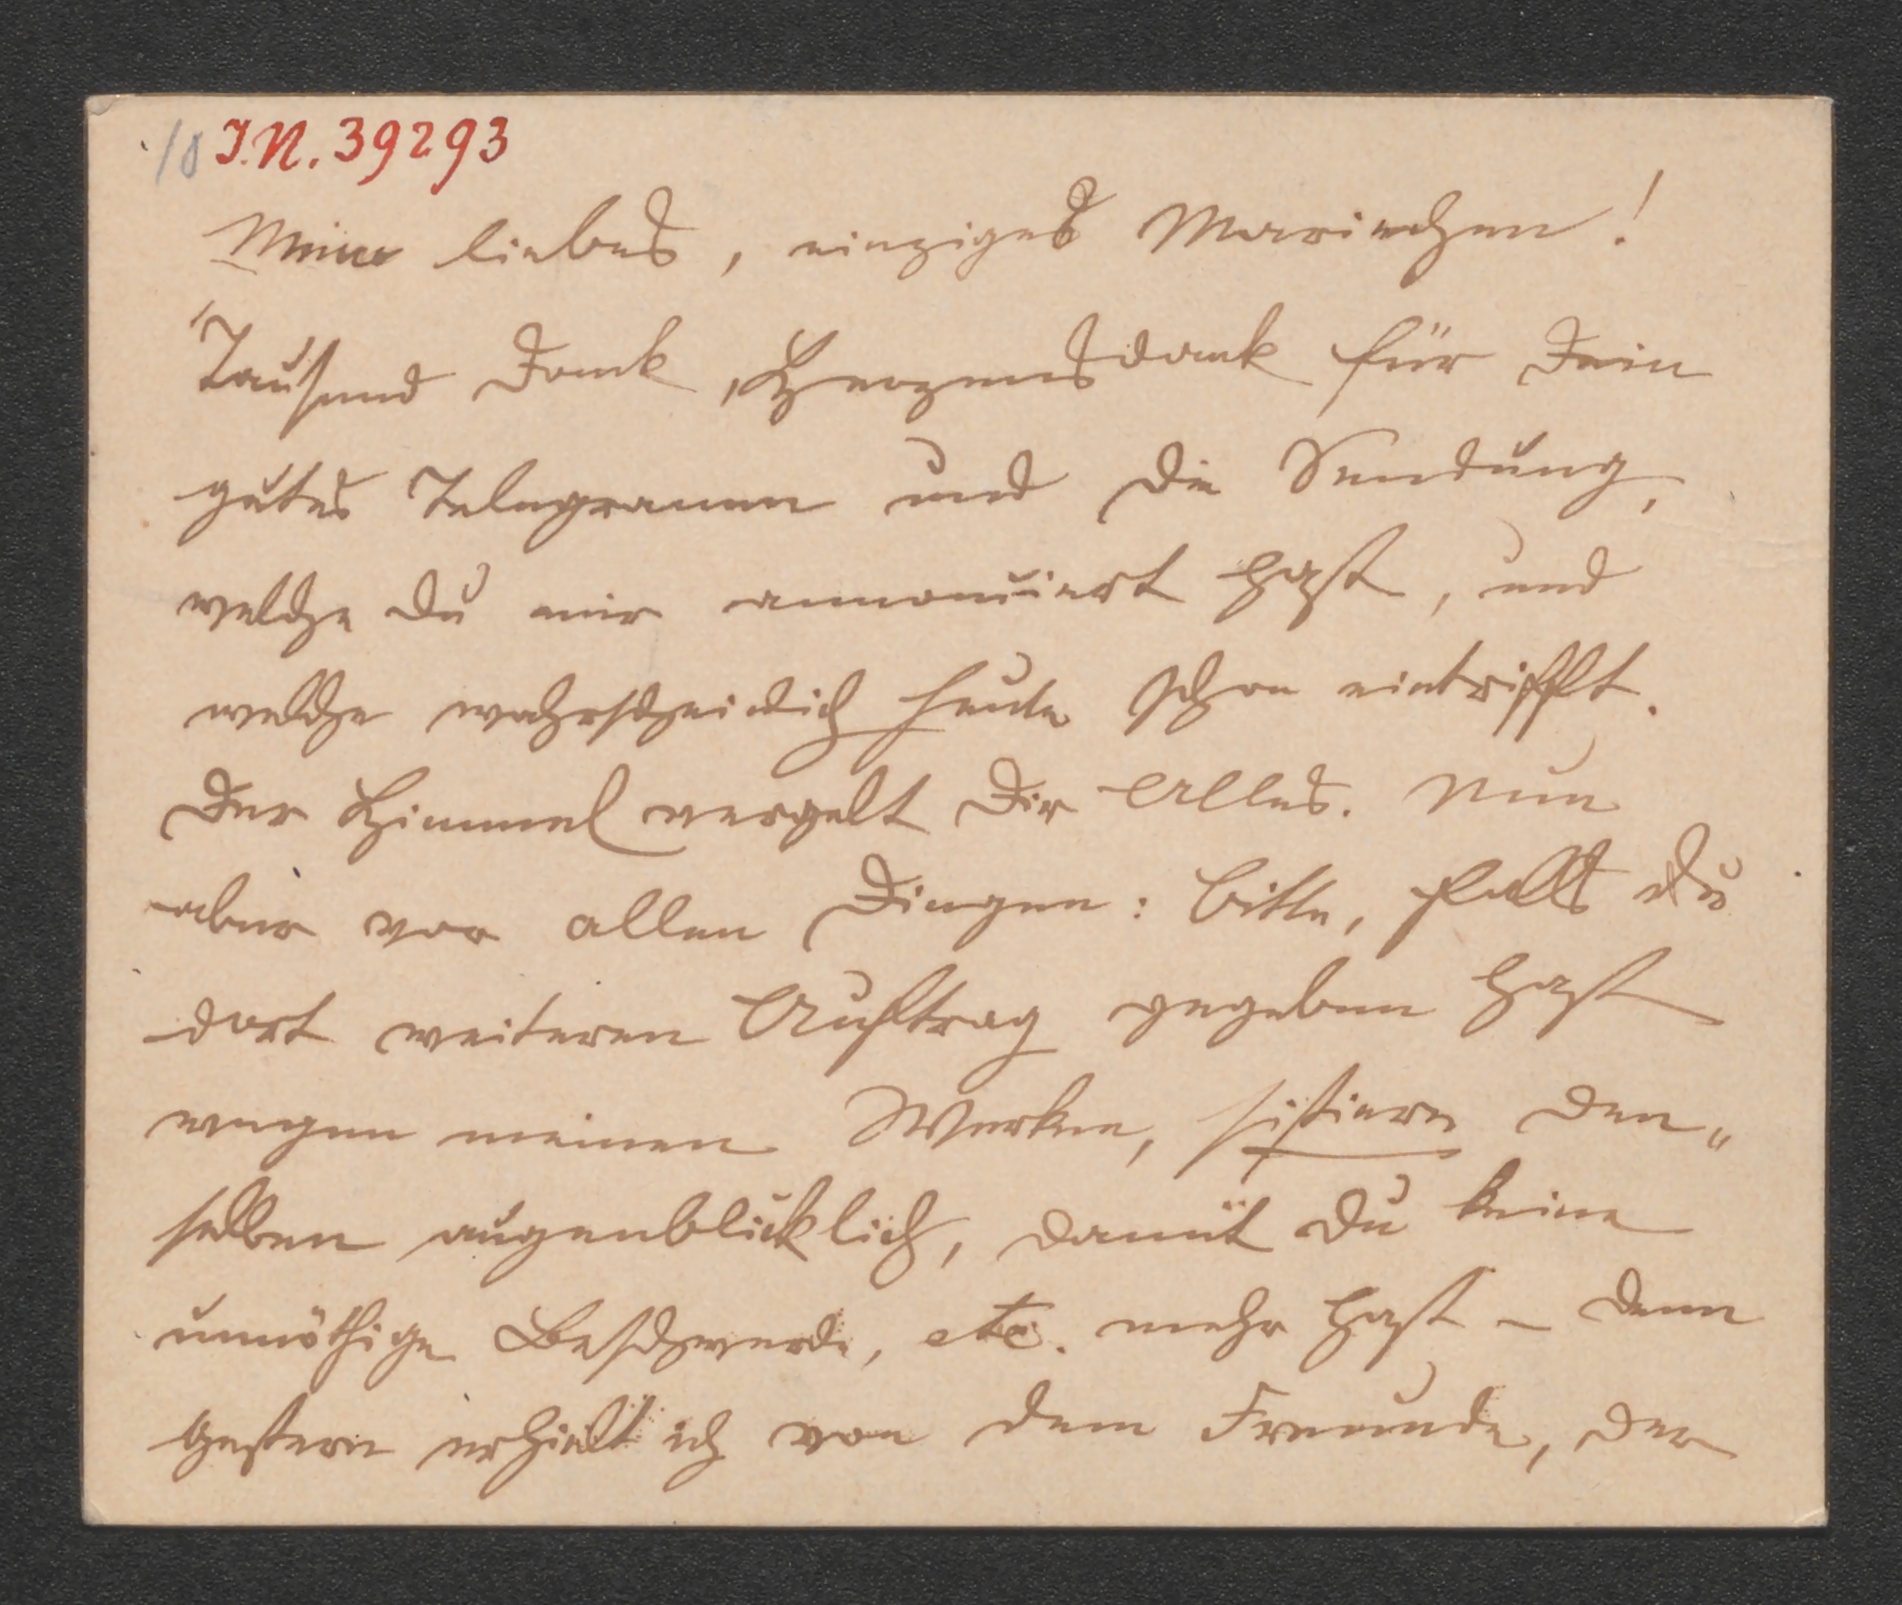 10 I.N. 39293
Mein liebes, einziges Mariechen!
Tausend Dank, Herzensdank für Dein
gutes Telegramm und die Sendung,
welche Du mir annonciert hast, und
welche wahrscheinlich heute schon eintrifft.
Der Himmel vergelt Dir Alles. Nun
aber vor allen Dingen: bitte, falls Du
dort weiteren Auftrag gegeben hast
wegen meinen Werken, sistiere den„
selben augenblicklich, damit Du keine
unnöthige Beschwerde, etc. mehr hast – denn
gestern erhielt ich von dem Freunde, der